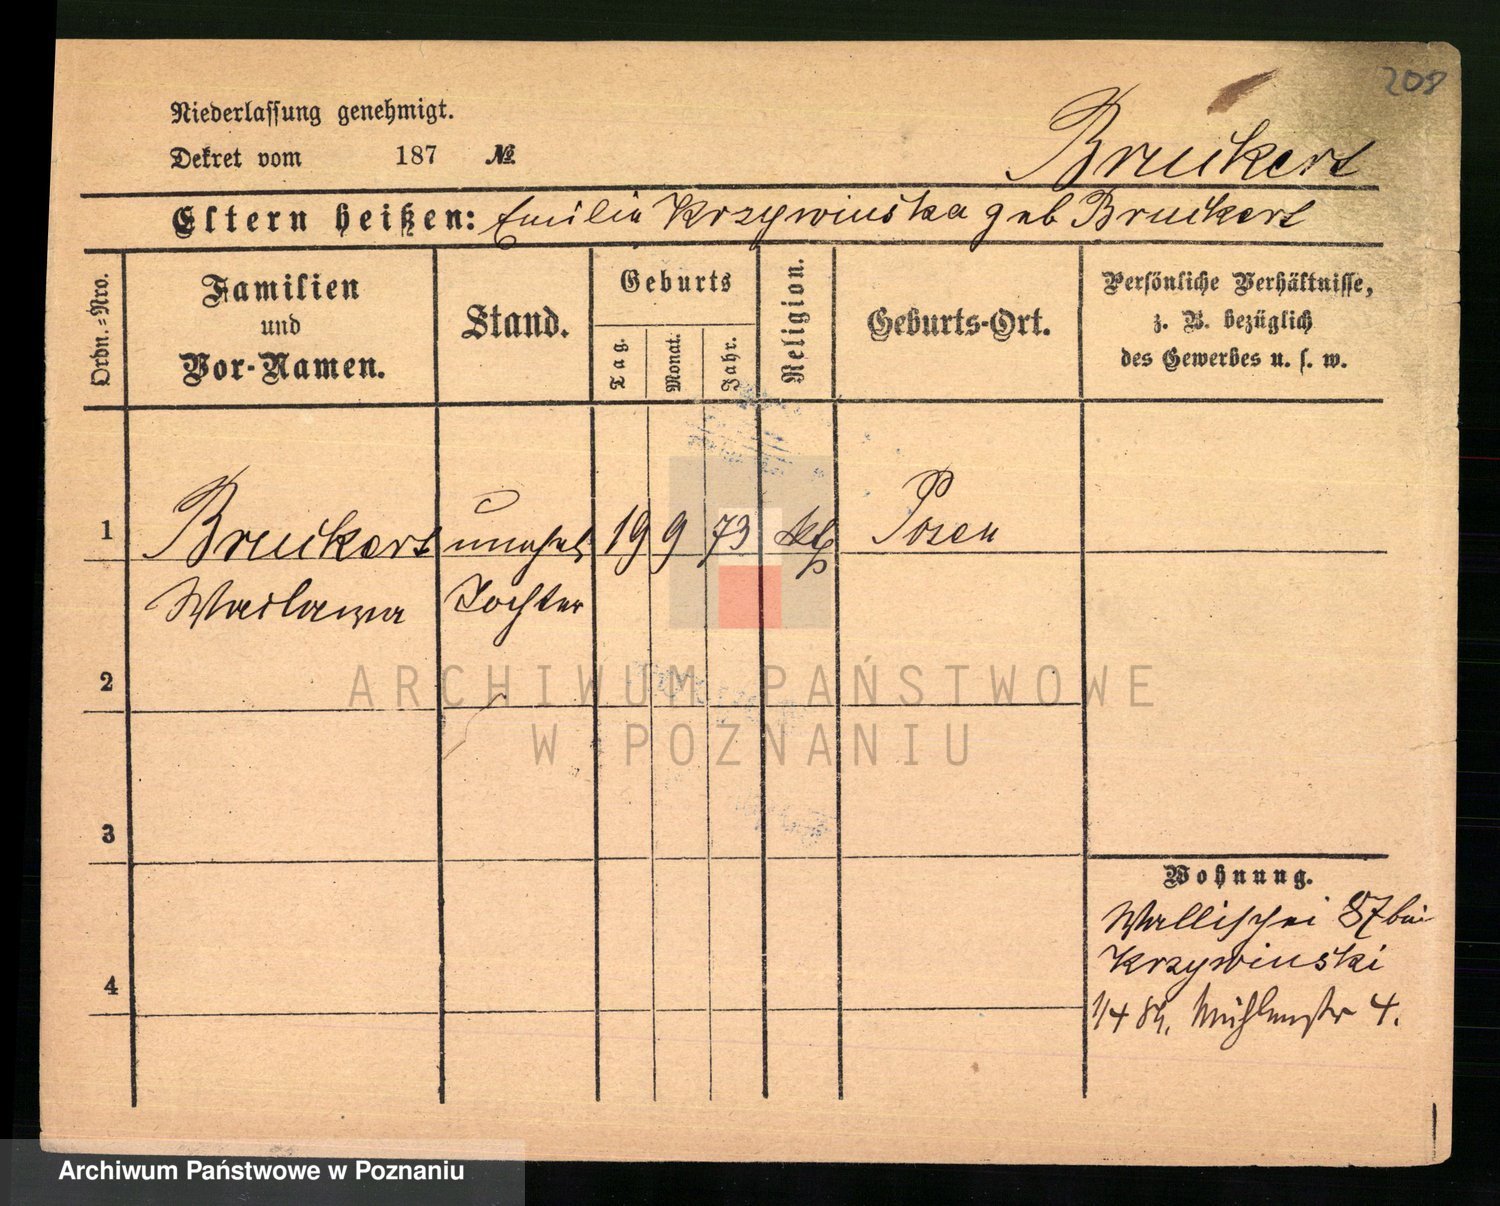 208
Niederlassung genehmigt.
Dekret vom 187 №
Bruikert
Eltern heißen: Emilie Krzywinska geb Bruikert
Ordn.=Nro.
Familien und Vor-Namen.
Stand.
Geburts
Tag.
Monat.
Jahr.
Religion.
Geburts-Ort.
Persönliche Verhältnisse, z. B. bezüglich des Gewerbes u. s. w.
1 Bruikert unehel 19 9 73 kth Posen
Waclawa Tochter
2
3
4
Wohnung.
Wallischei 87 bei
Krzywinski
1/4 84. Mühlenstr 4.
ARCHIWUM PAŃSTWOWE
W POZNANIU
Archiwum Państwowe w Poznaniu